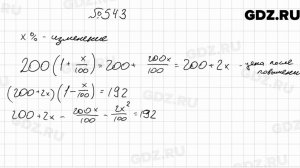 GDZ.RU
№543
x % - изменение
200(1+x/100)=200+200x/100=200+2x - цена после повышения
(200+2x)(1-x/100)=192
200+2x-200x/100-2x²/100=192
GDZ.RU